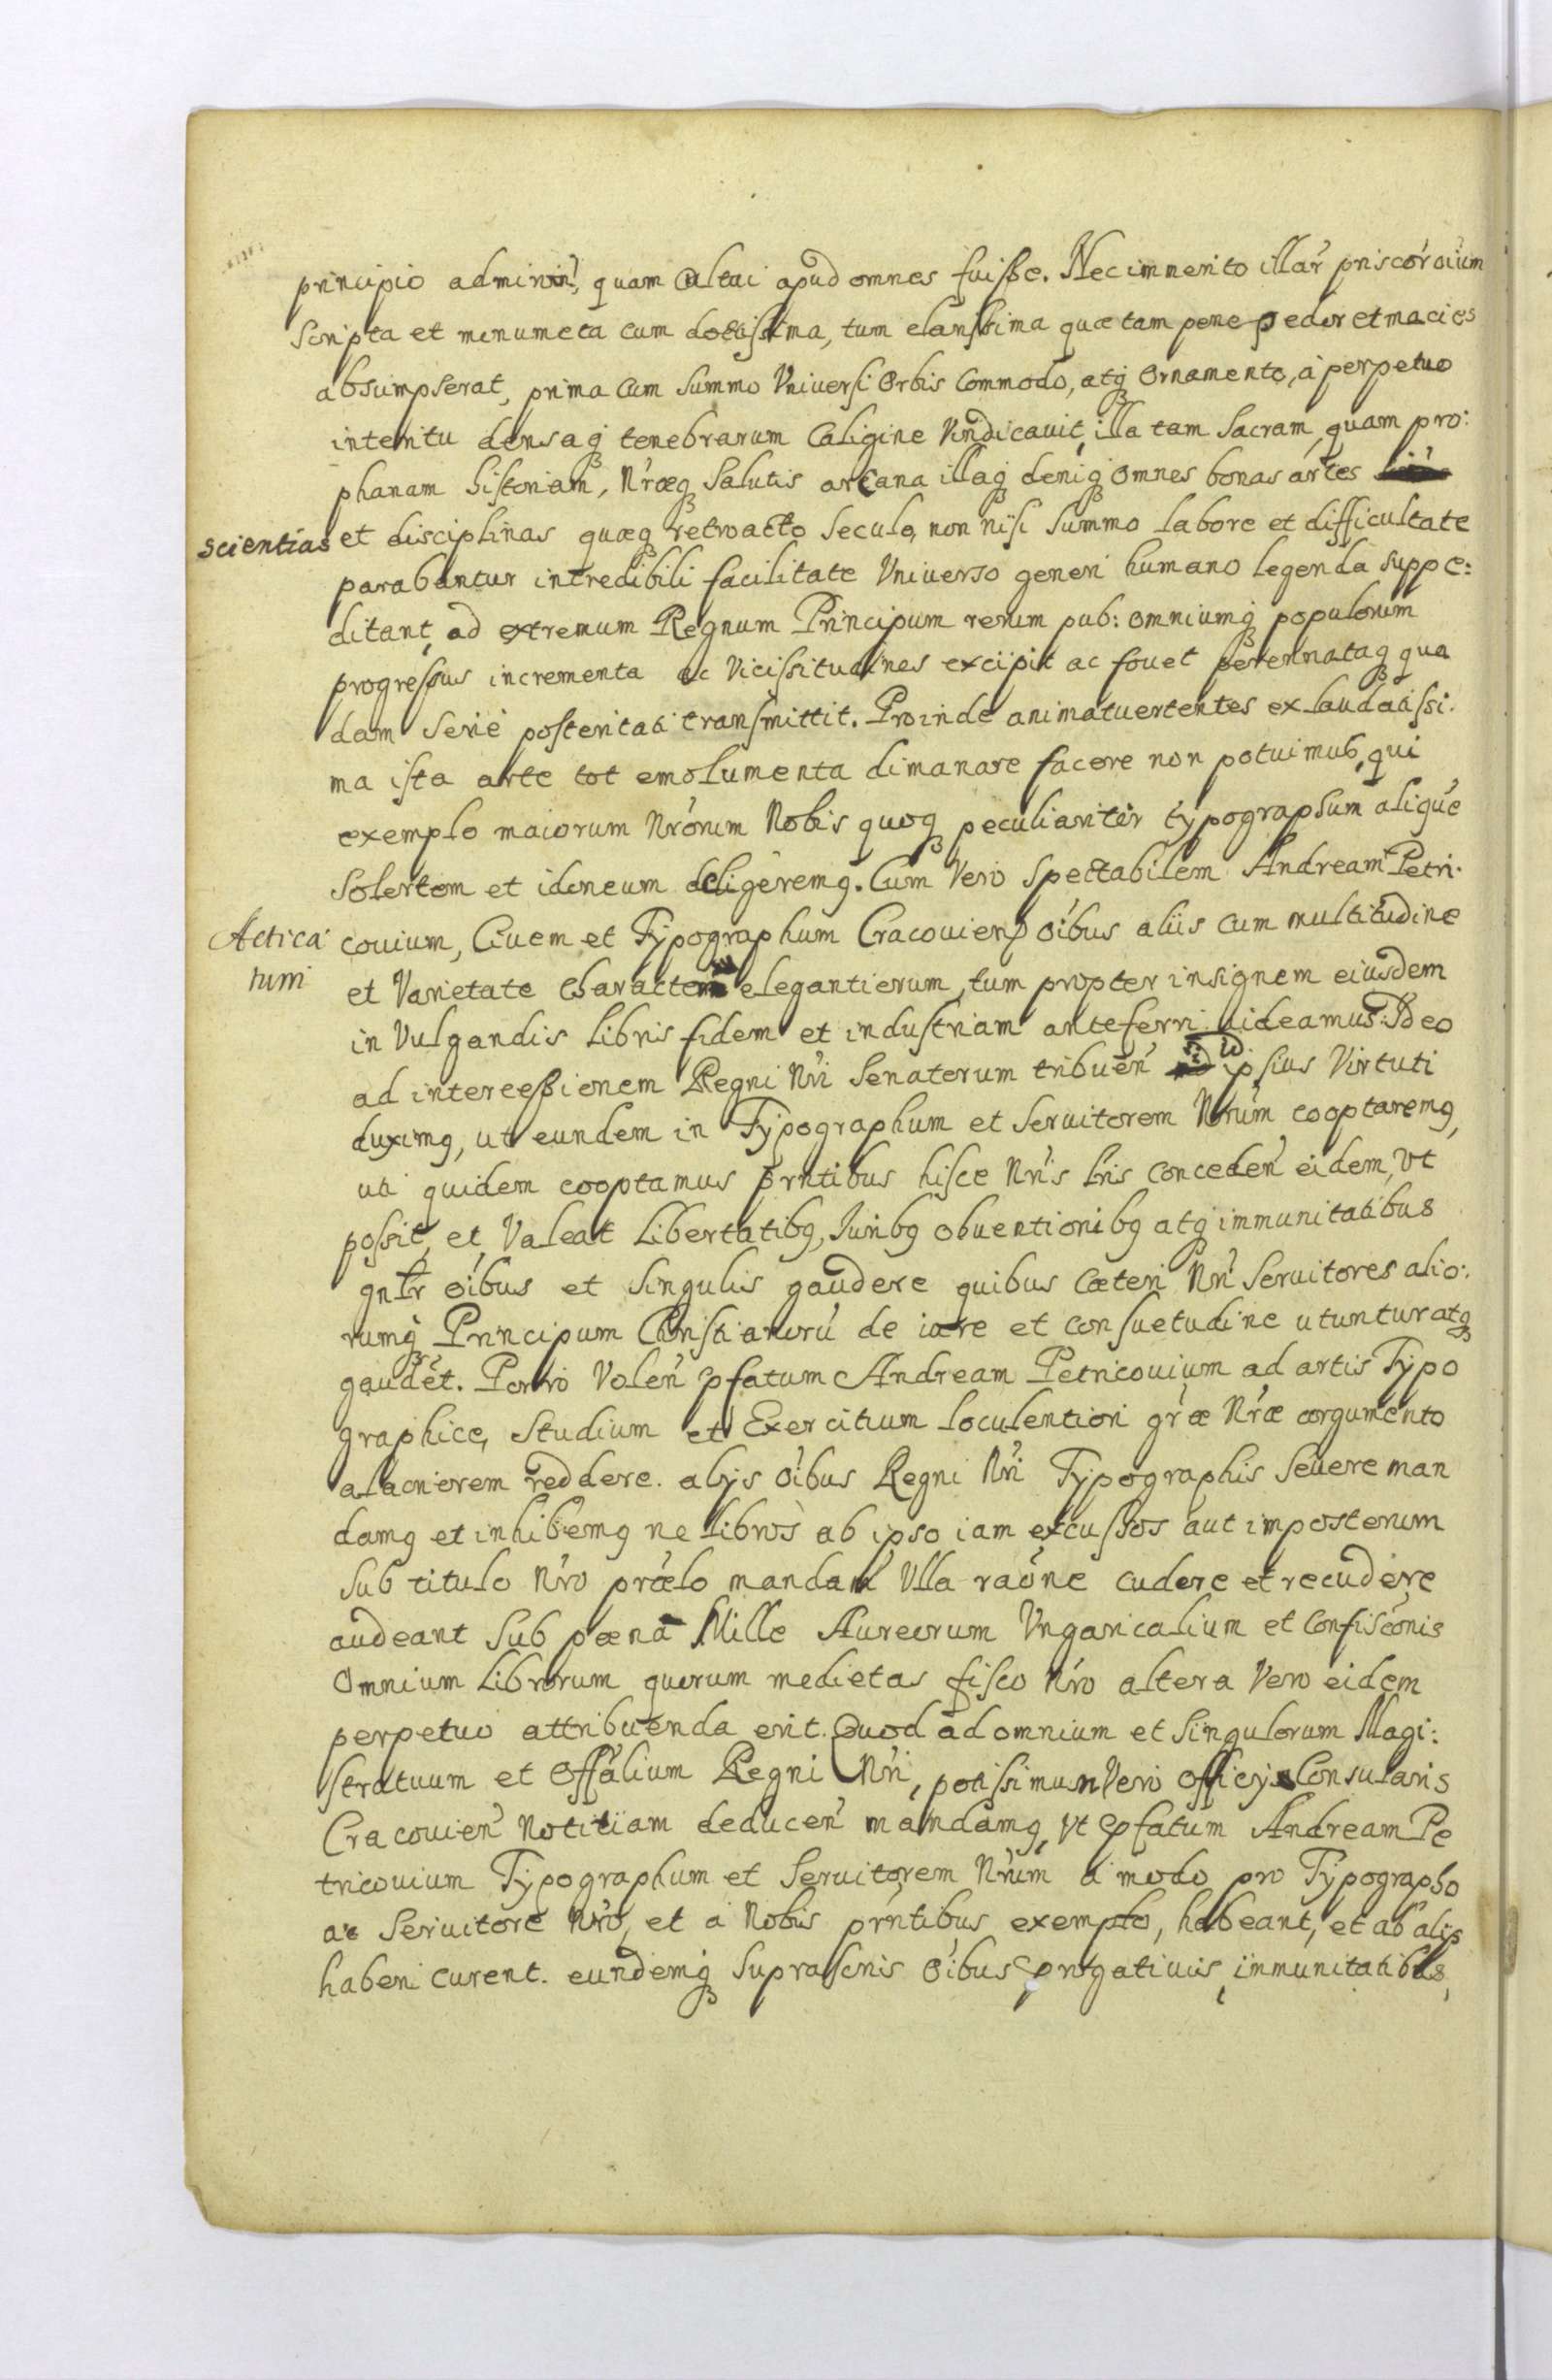 principio admironi, quam cultui apud omnes fuisse. Nec immerito illar̃ priscor̃ oīum
scripta et monumeta cum doctissima, tum clarissima quae tam pene pedor et macies
absumpserat, prima cum summo Vniuersi Orbis Commodo, atq3 Ornamento, à perpetuo
interitu densaq3 tenebrarum Caligine Vindicauit, illa tam Sacram quam pro:
phanam historiam, Nr̃æq3 Salutis arcana illaq3 deniq3 omnes bonas artes
scientias et disciplinas quæq3 retroacto Seculo, non nisi Summo labore et difficultate
parabantur incredibili facilitate Vniuerso generi humano legenda suppe:
ditant, ad extremum Regnum Principum rerum pub: omniumq3 populorum
progressus incrementa ac vicissitudines excipit ac fouet perennataq3 qua
dam Serie posteritati transmittit. Proinde animatuertentes ex laudatissi:
ma ista arte tot emolumenta dimanare facere non potuimus, qui
exemplo maiorum Nrõrum Nobis quoq3 peculiariter typographum aliquẽ
Solertem et idoneum deligeremq. Cum Vero Spectabilem Andream Petri:
couium, Ciuem et Typographum Cracouien̄ oībus aliis cum multitudine
Actica
tum
et Varietate Characterũ elegantiorum, tum propter insignem eiusdem
in Vulgandis Libris fidem et industriam anteferri uideamus: Ideo
ad intercessionem Regni Nri Senatorum tribuen̄ id ipsius Virtuti
duximq, ut eundem in Typographum et Seruitorem Nrũm cooptaremq,
uti quidem cooptamus prñtibus hisce Nris Lris conceden̄ eidem, Vt
possit, et Valeat Libertatibq, Juribq obuentionibq atq3 immunitatibus
gnlr̃ oībus et Singulis gaudere quibus Cæteri Nri Seruitores alio:
rumq3 Principum Christianorũ de iure et Consuetudine utuntur atq3
gaudẽt. Porro Volen̄ pfatum Andream Petricouium ad artis Typo
graphice, Studium et Exercitium loculentiori gr̃æ Nr̃æ argumento
alacriorem reddere. alijs oībus Regni Nri Typographis Seuere man
damq et inhibemq ne libros ab ipso iam excussos aut imposterum
Sub titulo Nro prælo mandan̄ Vlla raõne cudere et recudere
audeant Sub poena Mille Aureorum Vngaricalium et Confiscõnis
Omnium Librorum quorum medietas fisco Nro altera Vero eidem
perpetuo attribuenda erit. Quod ad omnium et Singulorum Magi:
stratuum et Offãlium Regni Nri, potissimum Vero Officij Consularis
Cracouien̄ Notitiam deducen̄ mandamq, Vt pfatum Andream Pe
tricouium Typographum et Seruitorem Nrum à modo pro Typographo
ac Seruitore Nro, et a Nobis prñtibus exempto, habeant, et ab alijs
haberi curent. eundemq3 Suprascris oībus progatiuis, immunitatibus,